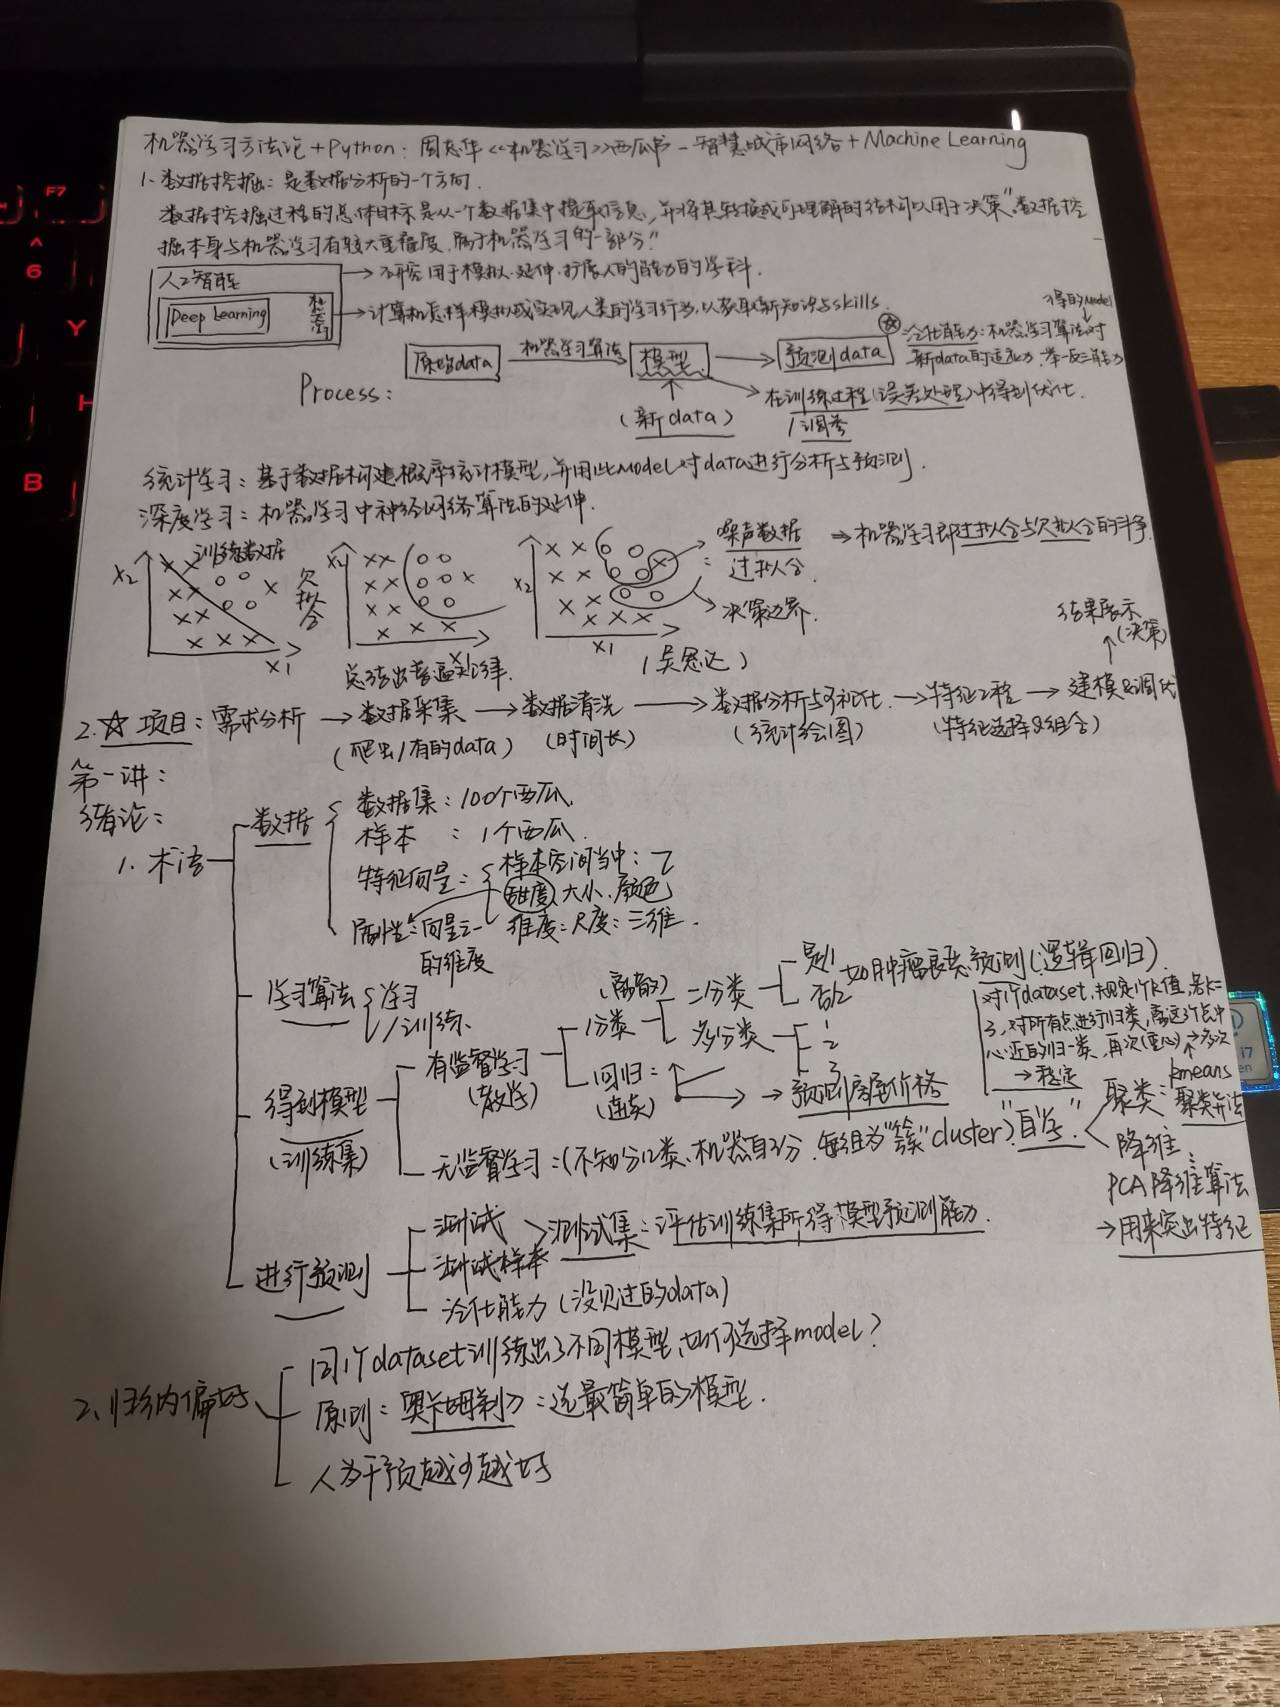 机器学习方法论+Python: 周志华<<机器学习>>西瓜书-智慧城市网络+Machine Learning
1、数据挖掘: 是数据分析的一个方向.
数据挖掘过程的总体目标是从一个数据集中提取信息, 并将其转换成可理解的结构以用于决策"数据挖
掘本身与机器学习有较大重叠度, 属于机器学习的一部分."
人工智能
→研究用于模拟、延伸、扩展人的能力的学科.
Deep Learning
机
→计算机怎样模拟或实现人类的学习行为, 以获取新知识与skills.
Process:
原始data
机器学习算法
模型
预测data
(新data)
得的Model
泛化能力: 机器学习算法对
新data的适应力, 举一反三能力
在训练过程(误差处理)中得到优化.
/调参
统计学习: 基于数据构建概率统计模型, 并用此Model对data进行分析与预测.
深度学习: 机器学习中神经网络算法的延伸.
训练数据
欠拟合
X2
X1
X2
X1
总结出普遍规律.
X2
X1
噪声数据
: 过拟合
决策边界.
(吴恩达)
→机器学习即过拟合与欠拟合的斗争.
2.☆ 项目: 需求分析→数据采集→数据清洗→数据分析与可视化→特征工程→建模&调优
(爬虫/有的data)
(时间长)
(统计绘图)
(特征选择&组合)
结果展示
(决策)
第一讲:
绪论:
1. 术语
数据
数据集: 100个西瓜.
样本: 1个西瓜.
特征向量: 样本空间当中:
甜度、大小、颜色
属性: 向量之一的维度
维度: 尺度: 三维.
学习算法
学习
/训练.
得到模型
(训练集)
有监督学习
(教学)
分类
(离散)
二分类
是1
否2
如肿瘤良恶预测(逻辑回归).
多分类
1
2
3
回归:
(连续)
→预测房屋价格
无监督学习: (不知分几类、机器自分, 每组为"簇"cluster)"自学"
对1个dataset, 规定1个k值, 若k=
3, 对所有点进行归类, 离这3个点中
心近的归一类, 再次(重心)→多次
→稳定
聚类: kmeans
聚类算法
降维:
PCA降维算法
→用来突出特征
进行预测
测试
测试样本
测试集: 评估训练集所得模型预测能力.
泛化能力(没见过的data)
2、归纳偏好
同1个dataset训练出了不同模型, 如何选择model?
原则: 奥卡姆剃刀: 选最简单的模型.
人为干预越少越好